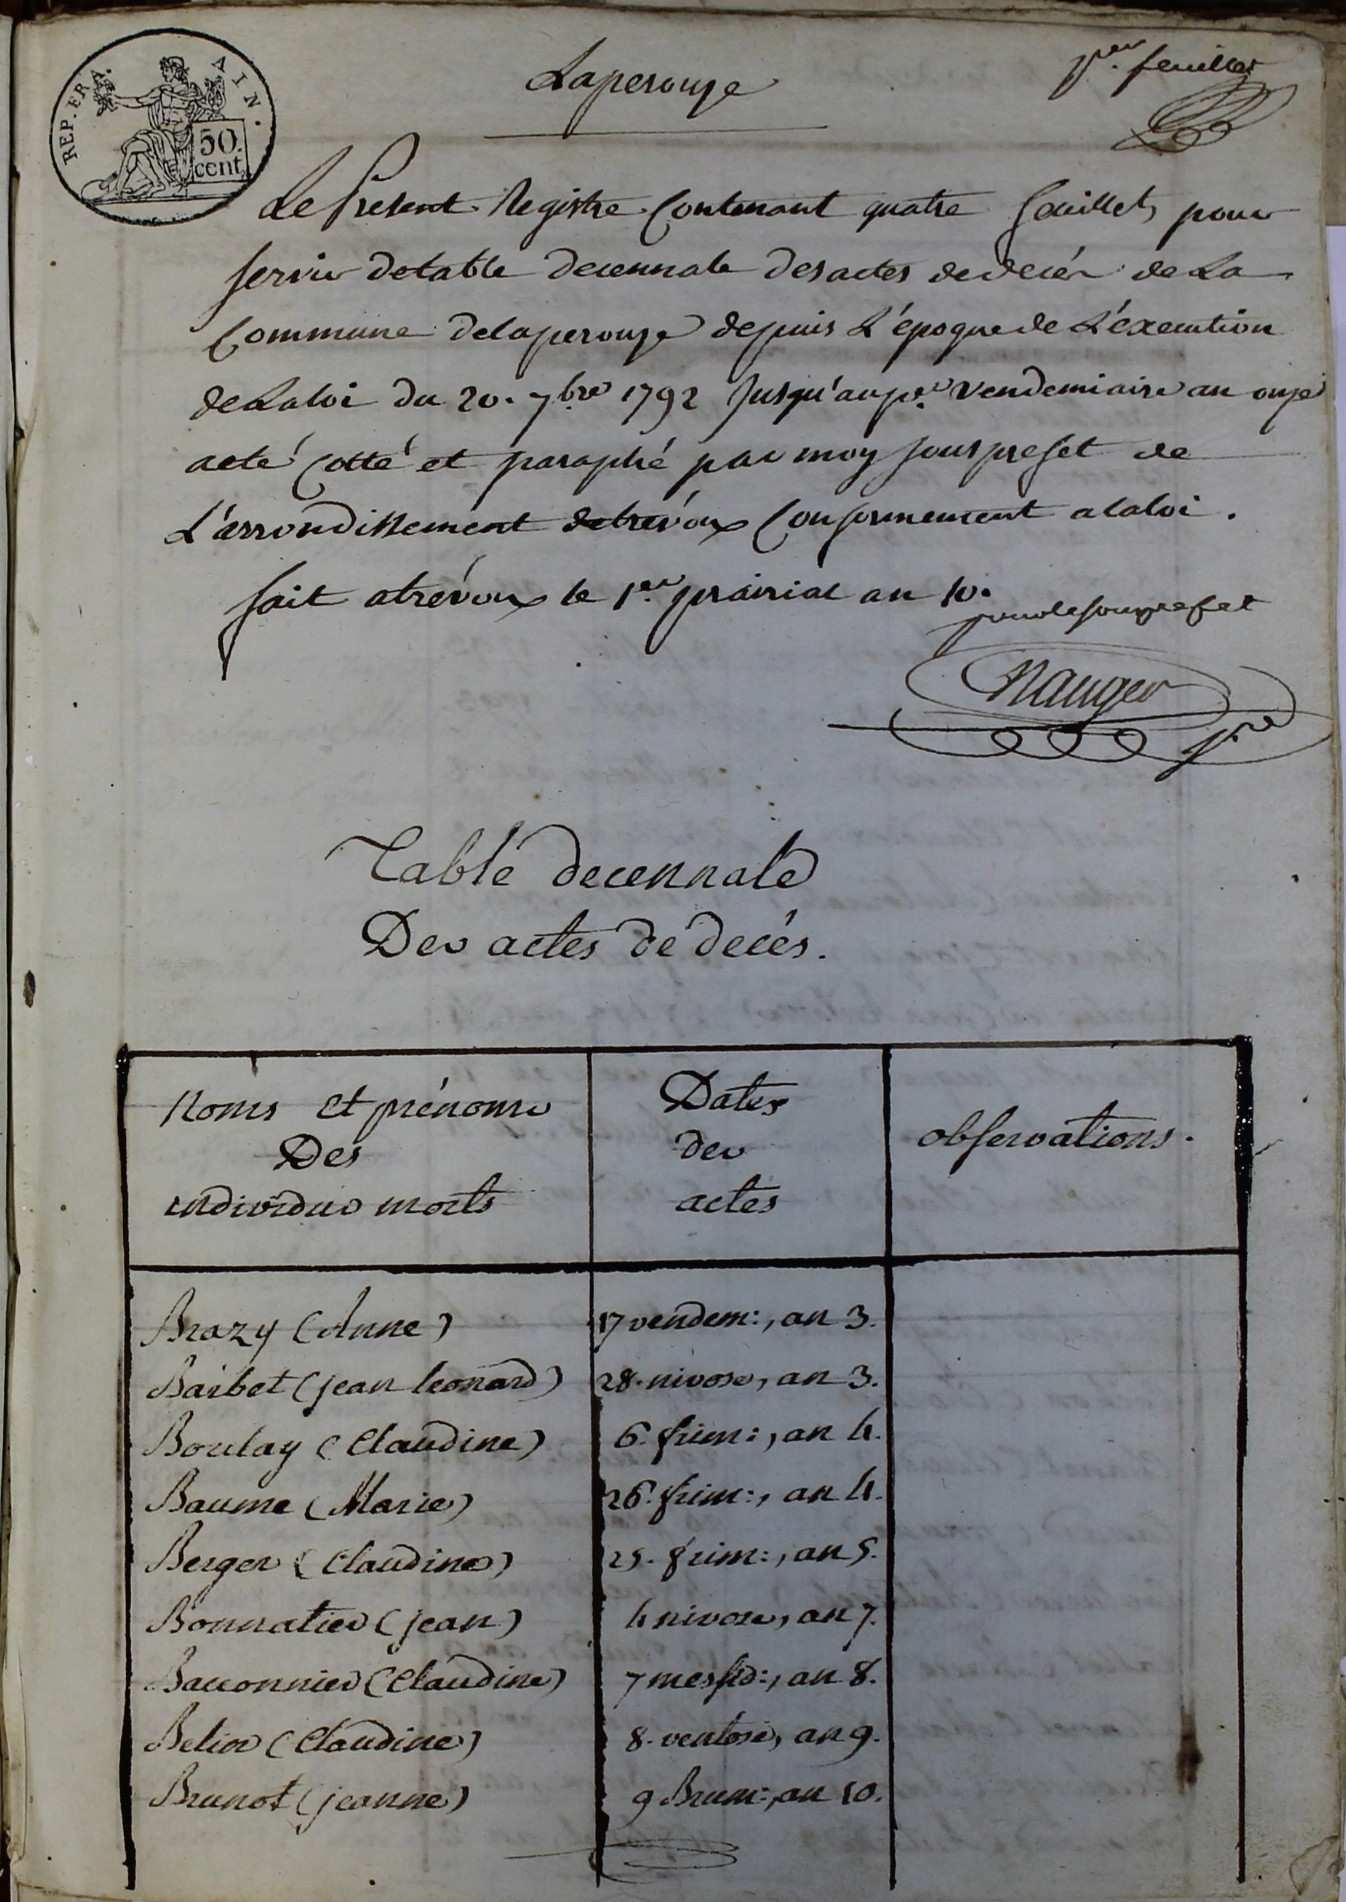 REP. FRA. AIN.
50.
cent
Laperouze
1er. feuillet
Le Present Registre Contenant quatre feuillets pour
servir detable decennale desactes dedecés de La
Commune delaperouze depuis L'époque de L'éxecution
deLaloi du 20. 7bre 1792 Jusqu'au pr. vendemiaire an onze
acté Cotté et paraphé par moy sousprefet de
L'arrondissement detrévoux Conformement alaloi.
fait atrévoux le 1er. prairial an 10.
pour le sousprefet
Nauger
Table decennale
Des actes de decés.
Noms et prénoms
Des
individus morts
Dates
des
actes
observations.
Brazy (Anne) 17 vendem:, an 3.
Barbet (jean leonard) 28. nivose, an 3.
Boulay (Claudine) 6. frim:, an 4.
Baume (Marie) 26. frim:, an 4.
Berger (Claudine) 25. frim:, an 5.
Bonnatier (jean) 4 nivose, an 7.
Bacconnier (Claudine) 7 messid:, an 8.
Belior (Claudine) 8. ventose, an 9.
Brunot (jeanne) 9 Brum:, an 10.